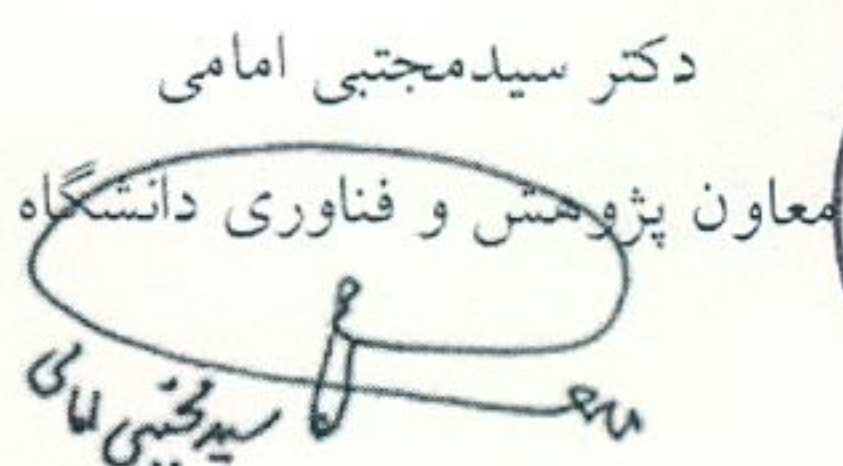 دکتر سیدمجتبی امامی
معاون پژوهش و فناوری دانشگاه
سیدمجتبی امامی